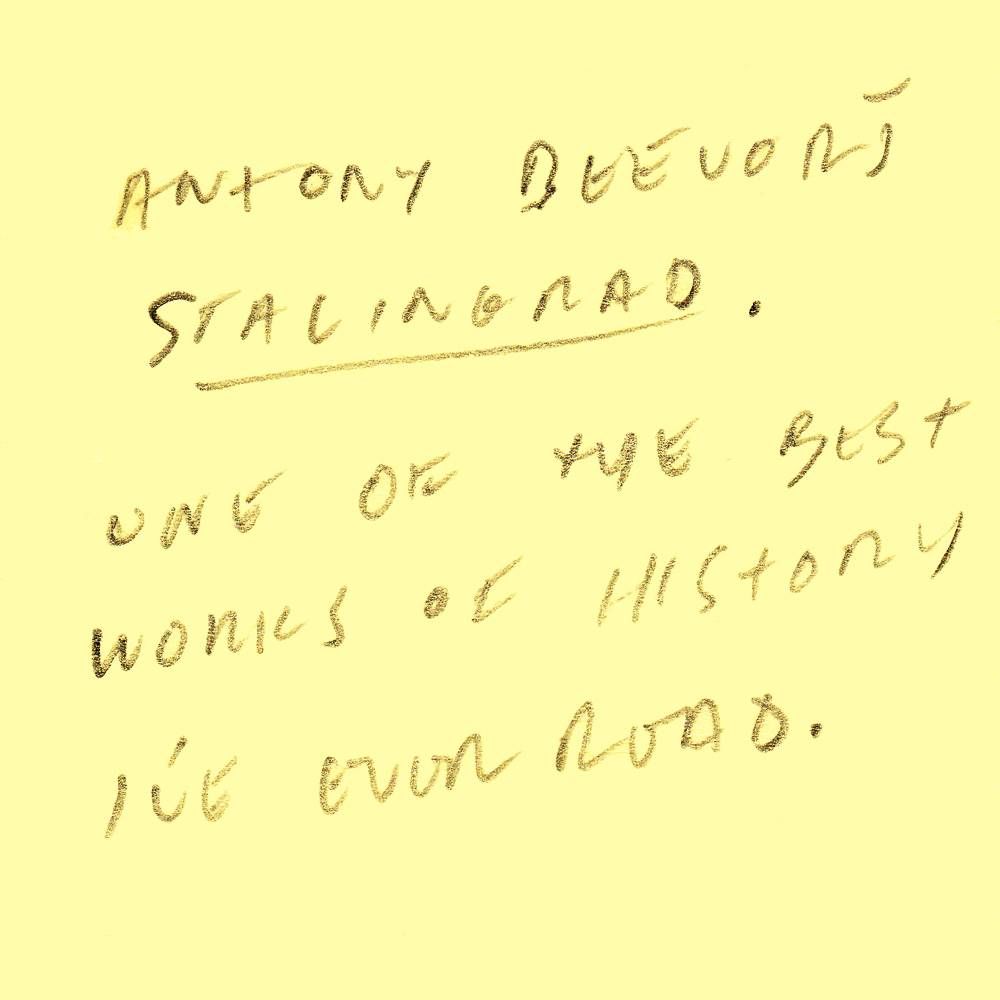 ANTONY BEEVOR'S
STALINGRAD.
ONE OF THE BEST
WORKS OF HISTORY
I'VE EVER READ.